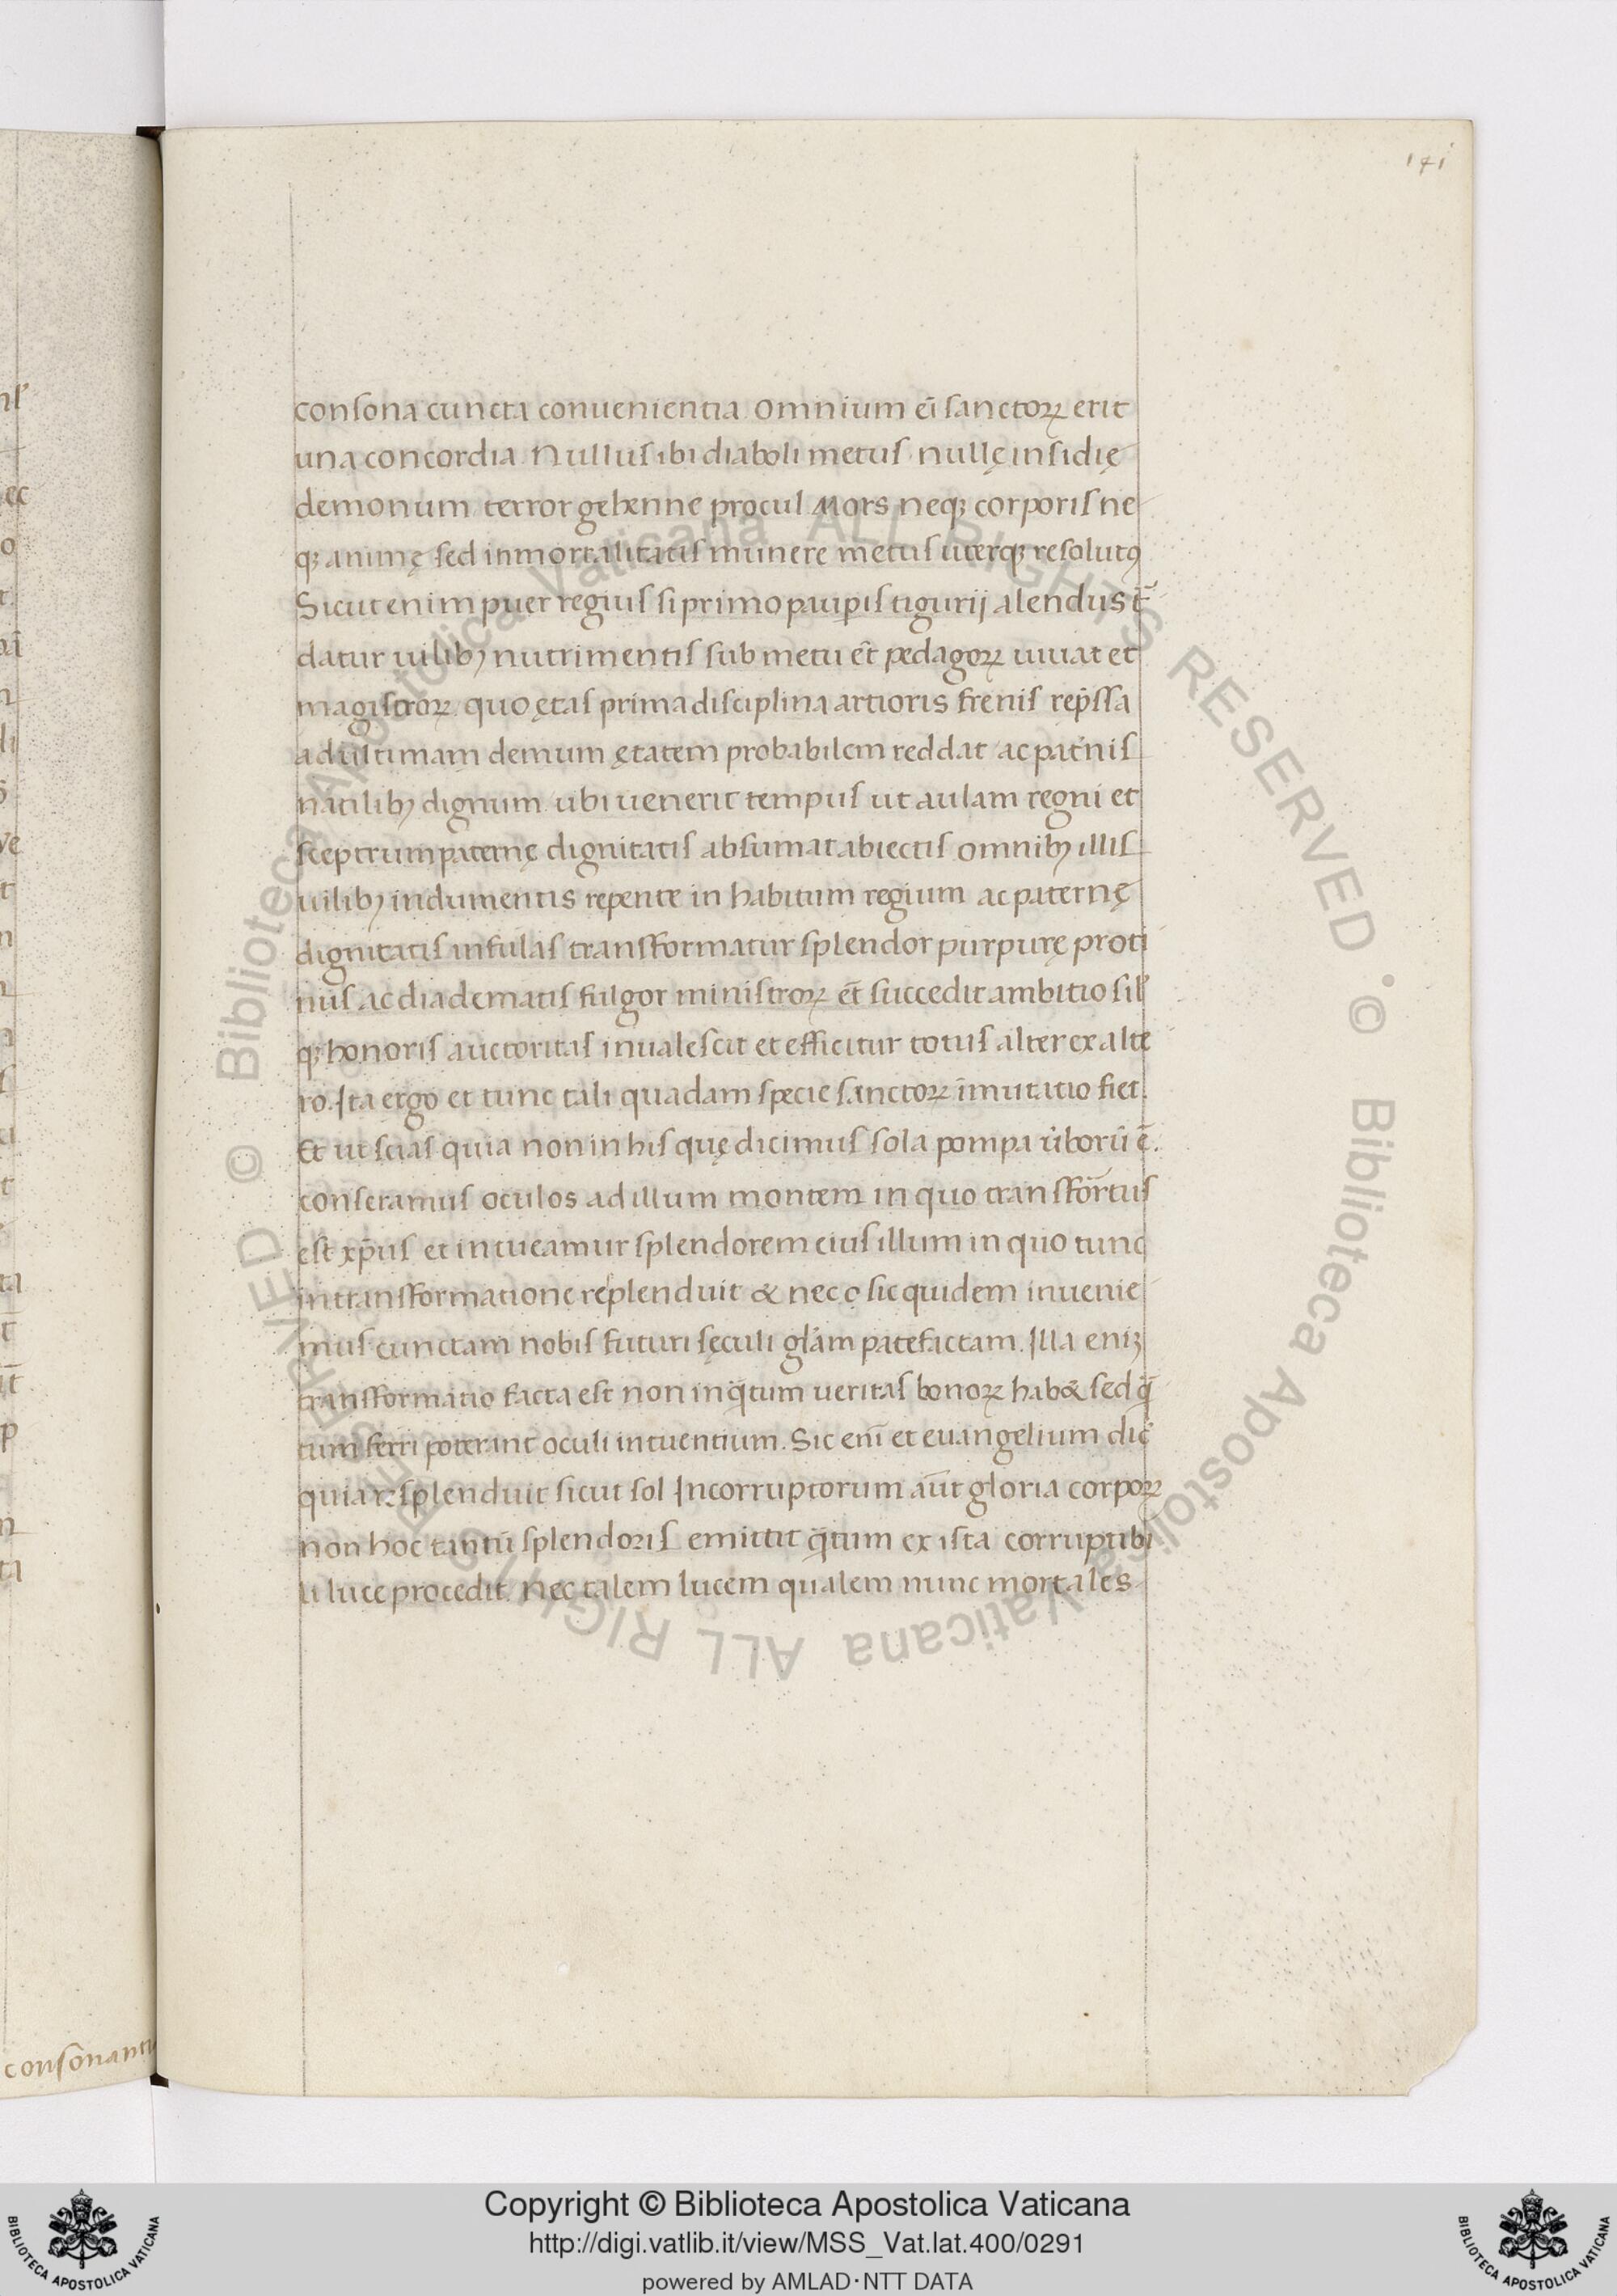 141
consona cuncta conuenientia Omnium eī sanctoꝝ erit
una concordia Nullus ibi diaboli metus nullę insidię
demonum terror gehenne procul Mors neqꝫ corporis ne
qꝫ animę sed inmortalitatis munere metus uterqꝫ resolutꝰ
Sicut enim puer regius si primo paupis tigurij alendus t̄
datur uilibꝫ nutrimentis sub metu et̄ pedagoꝝ uiuat et
magistroꝝ quo ętas prima disciplina artioris frenis rep̄ssa
ad ultimam demum ętatem probabilem reddat ac pat̄nis
natilibꝫ dignum ubi uenerit tempus ut aulam regni et
sceptrum paternę dignitatis absumat abiectis omnibꝫ illis
uilibꝫ indumentis repente in habitum regium ac paternę
dignitatis infulas transformatur splendor purpurę proti
nus ac diadematis fulgor ministroꝝ et̄ succedit ambitio sil̓
qꝫ honoris auctoritas inualescit et efficitur totus alter ex alte
ro. Ita ergo et tunc tali quadam specie sanctoꝝ īmutatio fiet.
Et ut scias quia non in his quę dicimus sola pompa u̓borū ē.
conseramus oculos ad illum montem in quo transfor̄tus
est xp̄us et intueamur splendorem eius illum in quo tunc
in transformatione resplenduit & nec sic quidem inuenie
mus cunctam nobis futuri sęculi glām patefactam. Illa eniꝫ
transformatio facta est non inq̄tum ueritas bonoꝝ hab& sed q̄
tum ferri poterint oculi intuentium. Sic enī et euangelium dic̄
quia resplenduit sicut sol Incorruptorum aūt gloria corpoꝝ
non hoc tantū splendoris emittit q̄tum ex ista corruptibi
li luce procedit. nec talem lucem qualem nunc mortales
consonanti
Copyright © Biblioteca Apostolica Vaticana
http://digi.vatlib.it/view/MSS_Vat.lat.400/0291
powered by AMLAD·NTT DATA
BIBLIOTECA APOSTOLICA VATICANA
BIBLIOTECA APOSTOLICA VATICANA
© Biblioteca Apostolica Vaticana ALL RIGHTS RESERVED
© Biblioteca Apostolica Vaticana ALL RIGHTS RESERVED